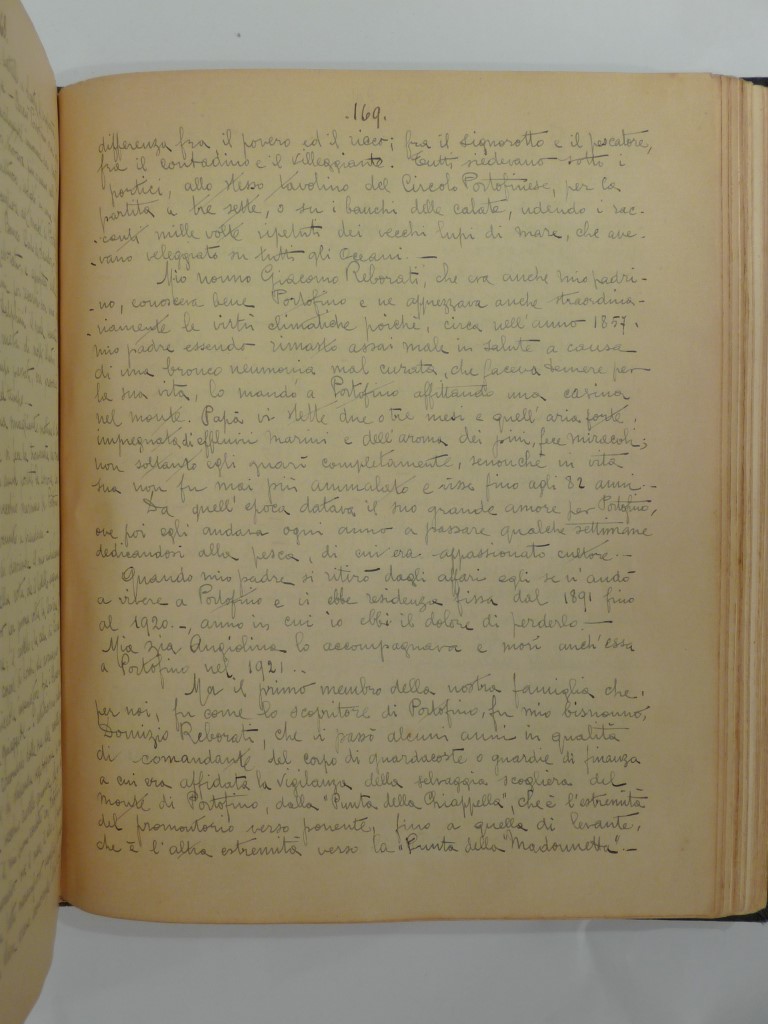 .169.
differenza fra il povero ed il ricco; fra il signorotto e il pescatore,
fra il contadino e il villeggiante. Tutti siedevano sotto i
portici, allo stesso tavolino del Circolo Portofinese, per la
partita a tre sette, o su i banchi delle calate, udendo i rac-
-conti mille volte ripetuti dei vecchi lupi di mare, che ave-
-vano veleggiato su tutti gli Oceani. —
Mio nonno Giacomo Reborati, che era anche mio padri-
-no, conosceva bene Portofino e ne apprezzava anche straordina-
-riamente le virtù climatiche poichè, circa nell'anno 1857.
mio padre essendo rimasto assai male in salute a causa
di una bronco neumonia mal curata, che faceva temere per
la sua vita, lo mandò a Portofino affittando una casina
nel monte. Papà vi stette due o tre mesi e quell'aria forte,
impregnata di effluvii marini e dell'aroma dei pini, fece miracoli;
non soltanto egli guarì completamente, senonchè in vita
sua non fu mai più ammalato e visse fino agli 82 anni. —
Da quell'epoca datava il suo grande amore per Portofino,
ove poi egli andava ogni anno a passare qualche settimana
dedicandosi alla pesca, di cui era appassionato cultore. —
Quando mio padre si ritirò dagli affari egli se n'andò
a vivere a Portofino e vi ebbe residenza fissa dal 1891 fino
al 1920. —, anno in cui io ebbi il dolore di perderlo. —
Mia zia Angiolina lo accompagnava e morì anch'essa
a Portofino nel 1921. .
Ma il primo membro della nostra famiglia che,
per noi, fu come lo scopritore di Portofino, fu mio bisnonno,
Domizio Reborati, che vi passò alcuni anni in qualità
di comandante del corpo di guardacoste o guardie di finanza
a cui era affidata la vigilanza della selvaggia scogliera del
monte di Portofino, dalla "Punta della Chiappella", che è l'estremità
del promontorio verso ponente, fino a quella di levante,
che è l'altra estremità verso la "Punta della "Madonnetta". —